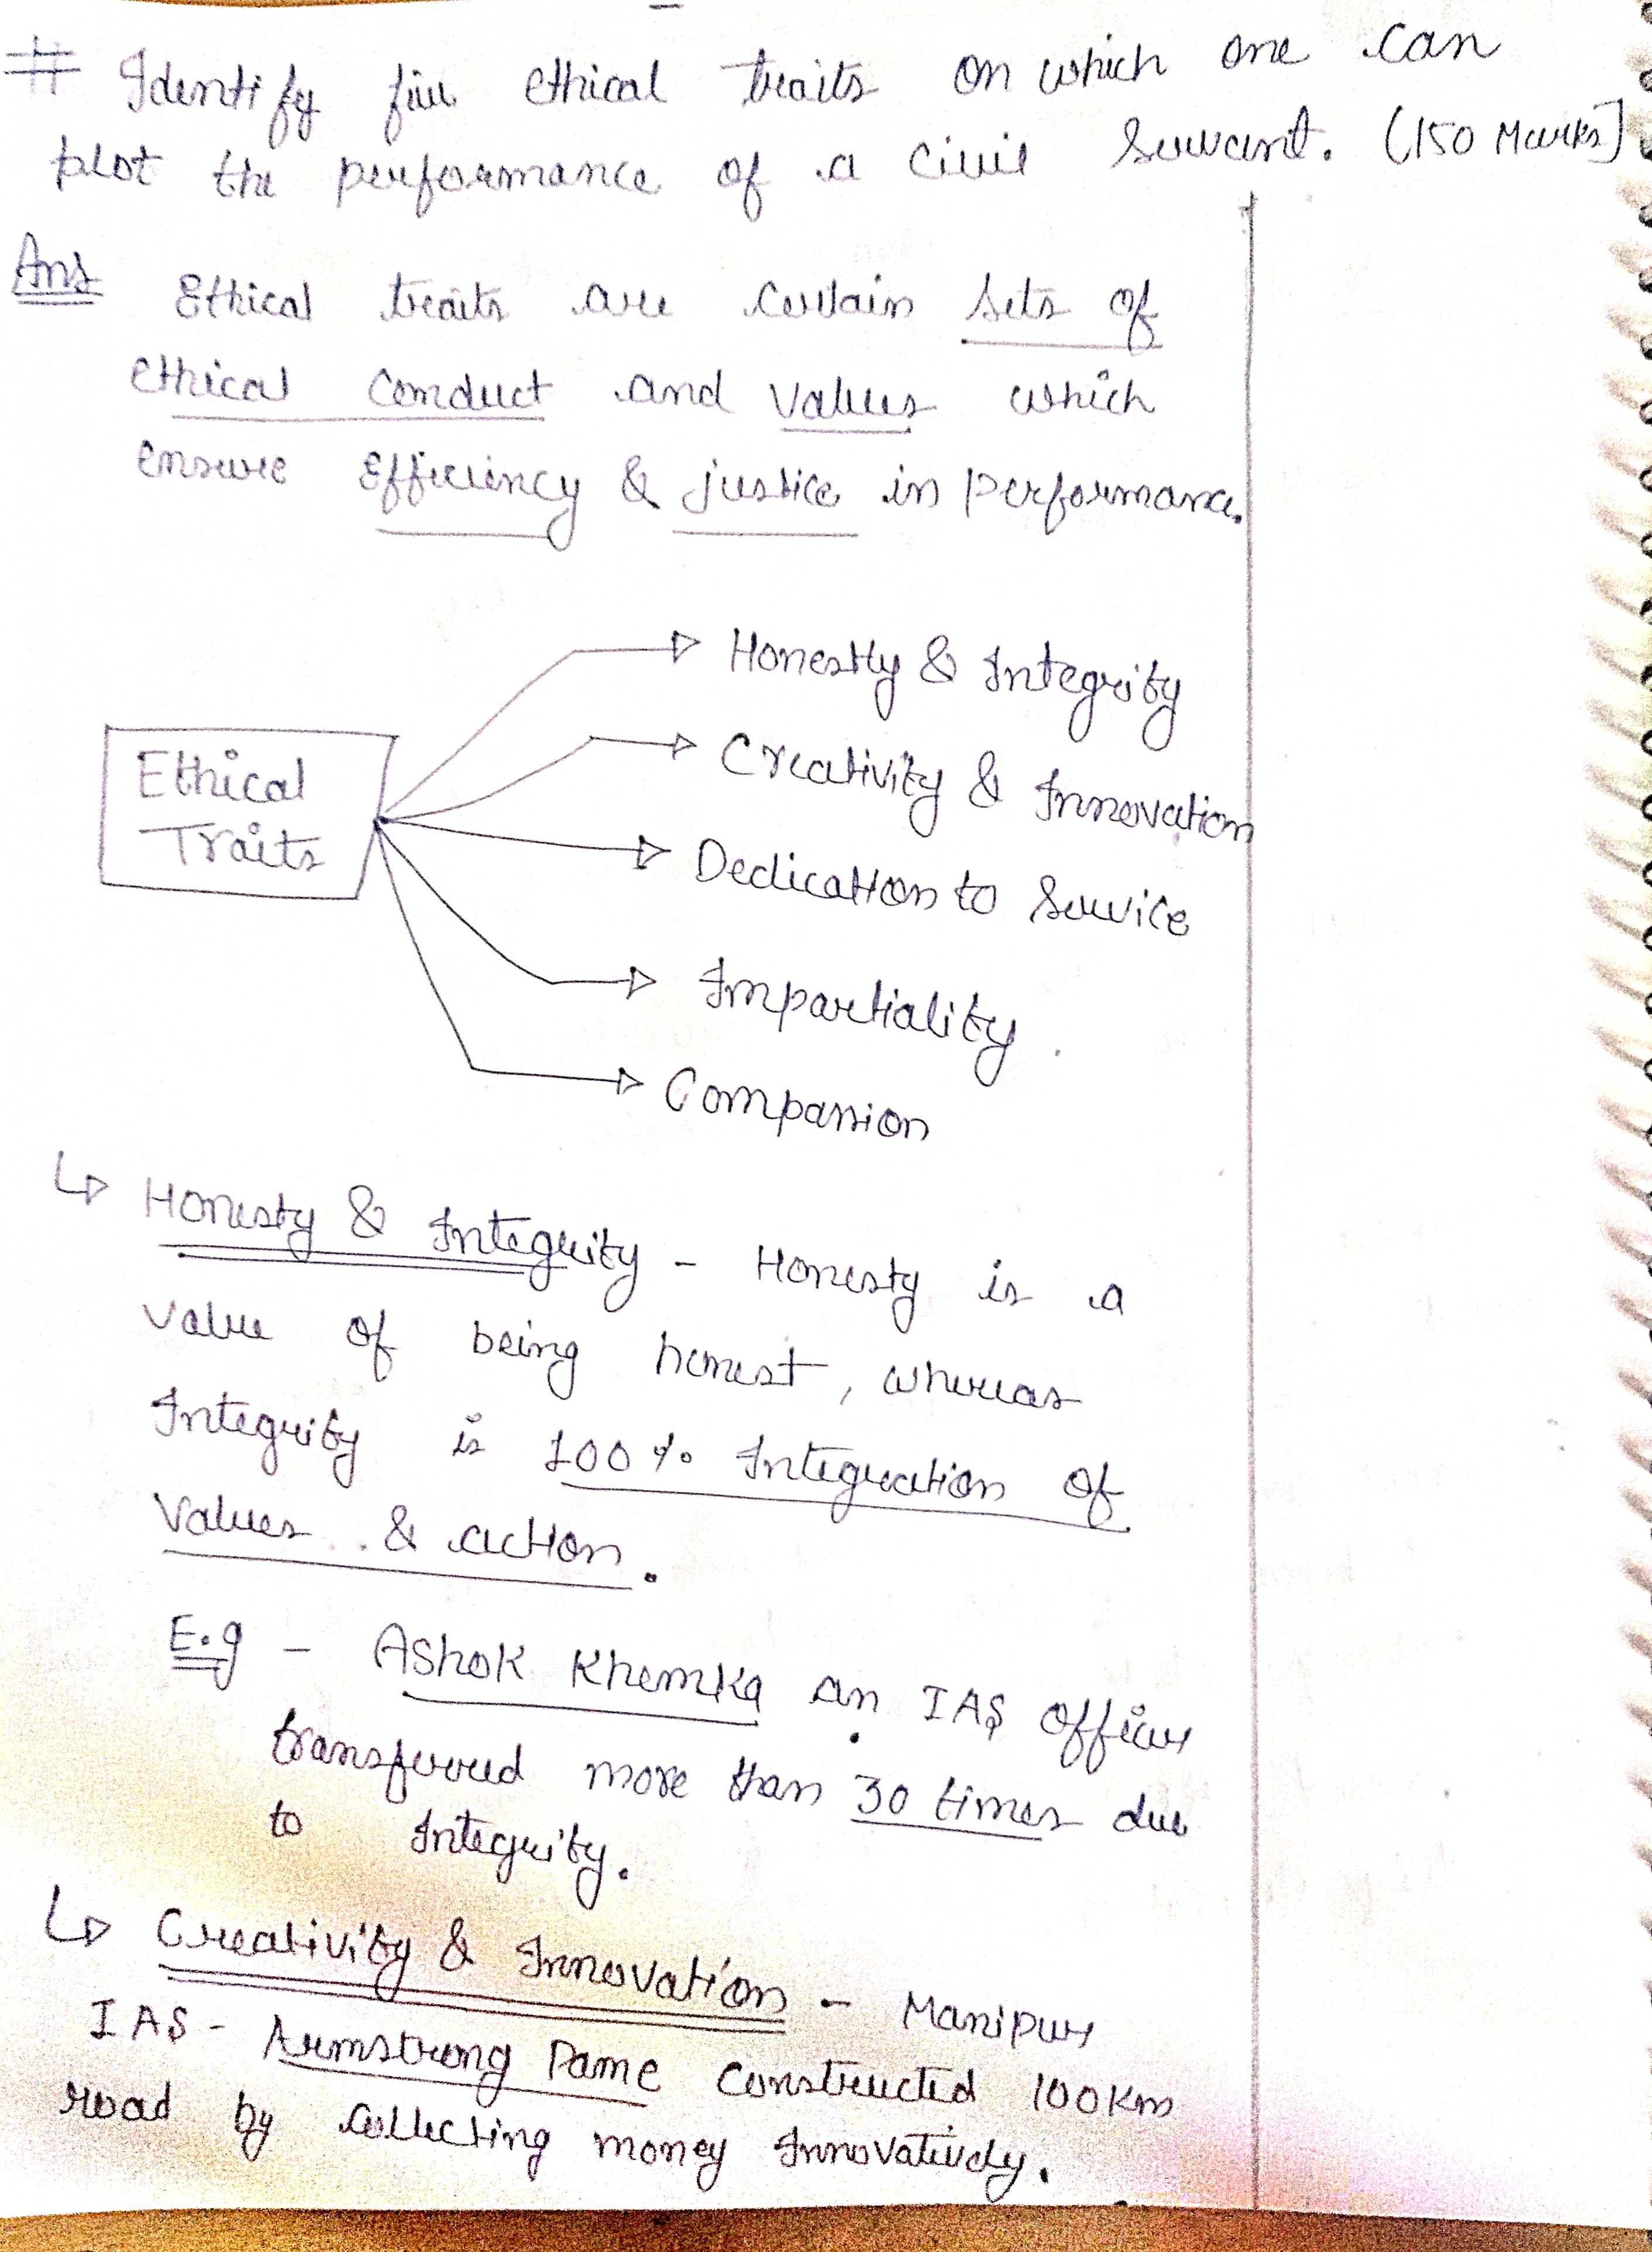 # Identify five ethical traits on which one can
plot the performance of a civil servant. (150 Marks]
Ans Ethical traits are certain sets of
ethical conduct and values which
ensure Efficiency & justice in performance.
Ethical
Traits
Honestly & Integrity
Creativity & Innovation
Dedication to Service
Impartiality
Compassion
↳ Honesty & Integrity - Honesty is a
value of being honest, whereas
Integrity is 100% Integration of
values & action.
E.g - Ashok Khemka an IAS officer
transferred more than 30 times due
to Integrity.
↳ Creativity & Innovation - Manipur
IAS - Armstrong Pame constructed 100km
road by collecting money Innovatively.